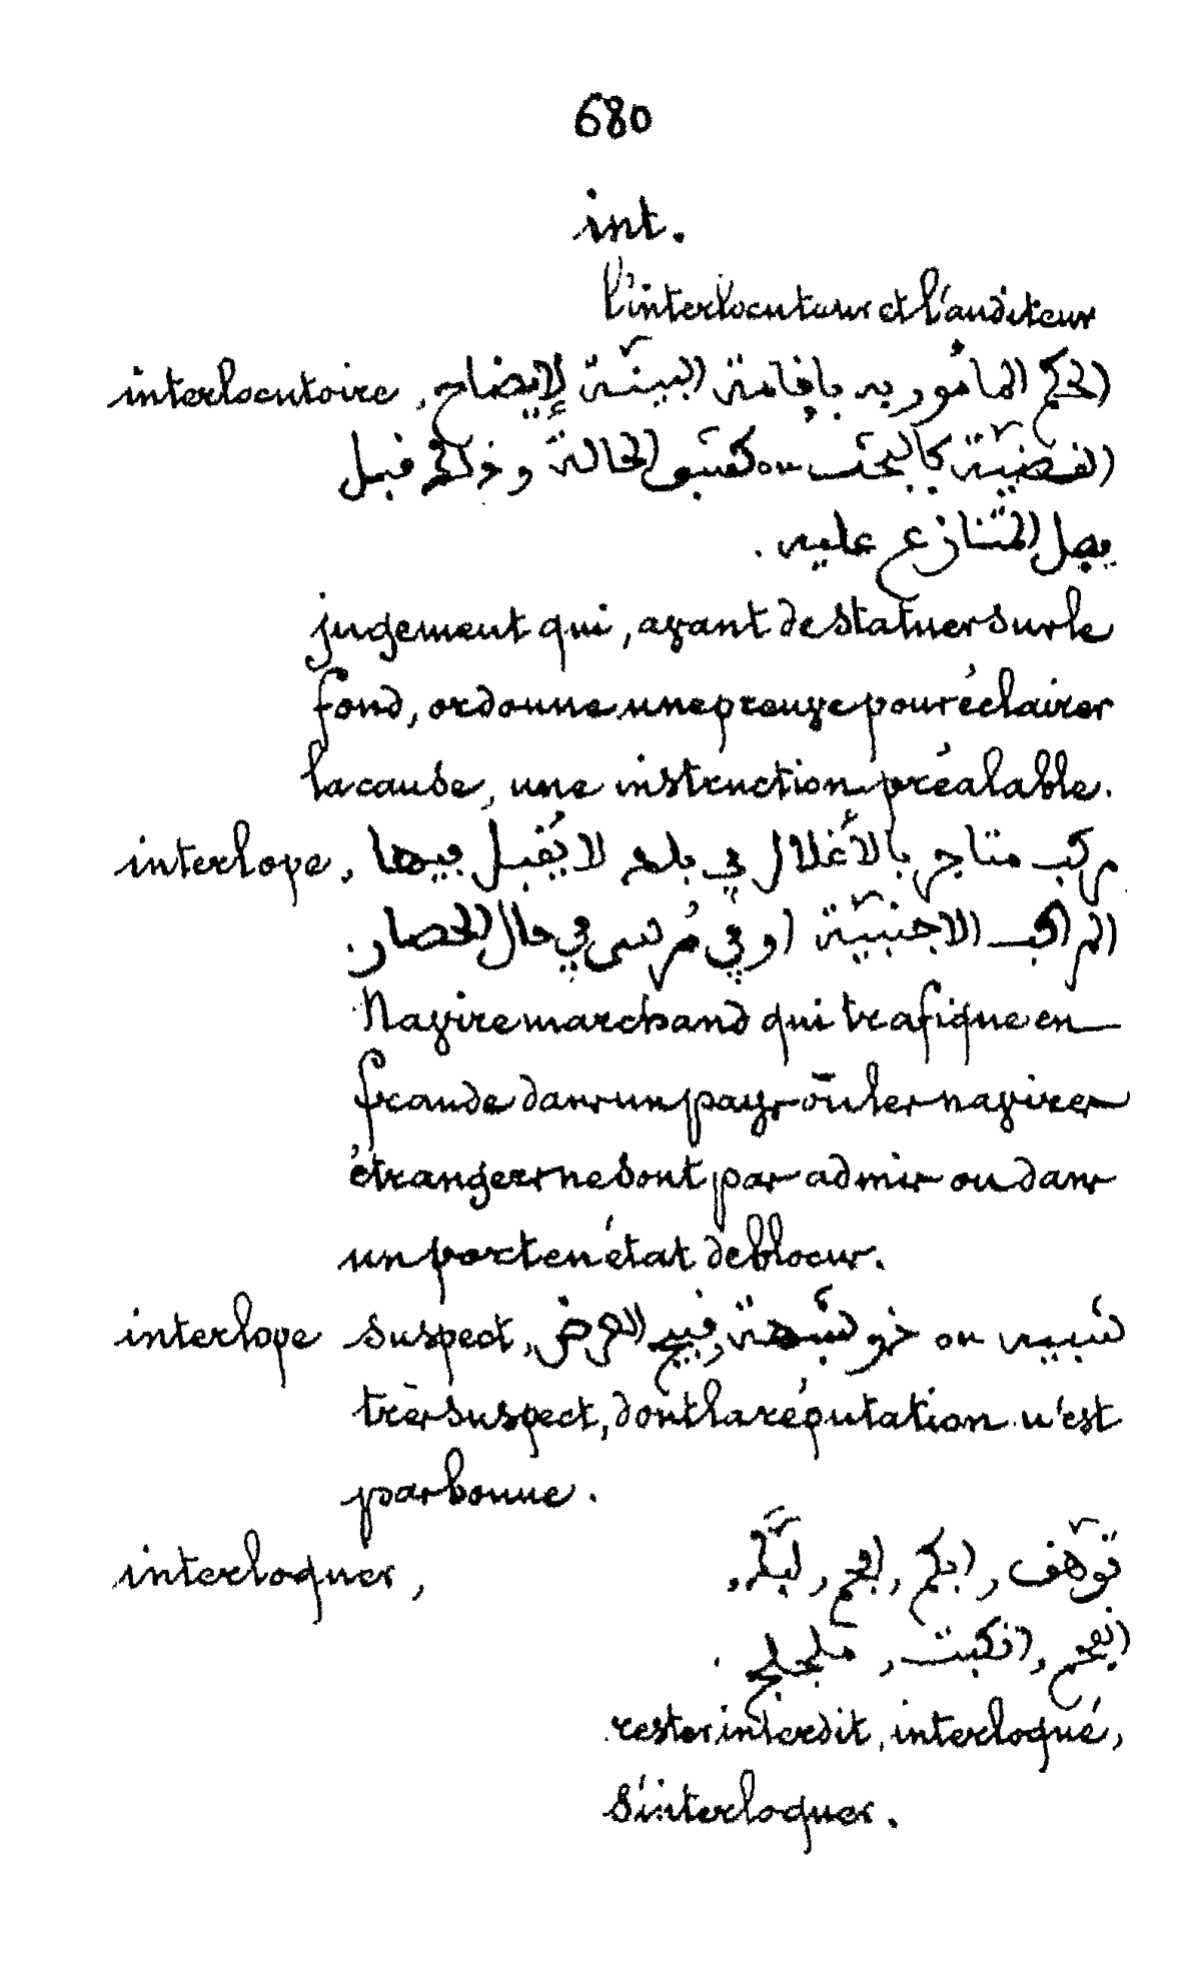 680
int.
l'interlocuteur et l'auditeur
interlocutoire, الحكم المأمور به بإقامة البينّة لإيضاح
القضيّة كالبحث ou كشف الحالة وذلك قبل
فصل المتنازع عليه.
jugement qui, avant de statuer sur le
fond, ordonne une preuve pour éclairer
la cause, une instruction préalable.
interlope, مركب متاجر بالأغلال في بلد لا يُقبل فيها
المراكب الاجنبيّة او في مُرسى في حال الحصار.
Navire marchand qui trafique en
fraude dans un pays où les navires
étrangers ne sont pas admis ou dans
un port en état de blocus.
interlope suspect, شبيه ou ذو شبهة, قبيح العرض
très suspect, dont la réputation n'est
pas bonne.
interloquer, توقّف, ابكم, افحم,
انفحم, انكبت,
rester interdit, interloqué,
s'interloquer.